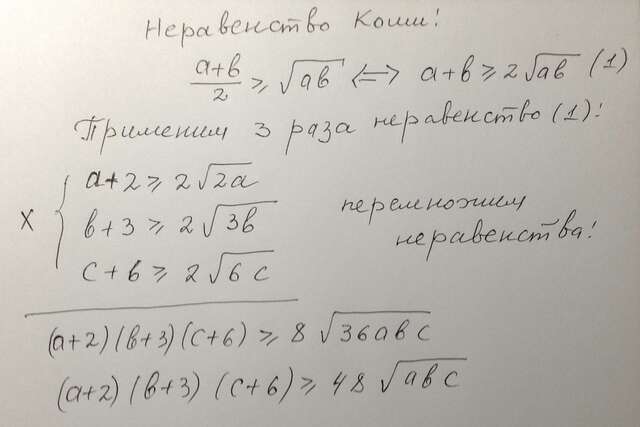 Неравенство Коши!
(a+b)/2 ≥ √ab ⟺ a+b ≥ 2√ab (1)
Применим 3 раза неравенство (1)!
a+2 ≥ 2√2a
x { b+3 ≥ 2√3b перемножим неравенства!
c+6 ≥ 2√6c
(a+2)(b+3)(c+6) ≥ 8√36abc
(a+2)(b+3)(c+6) ≥ 48√abc